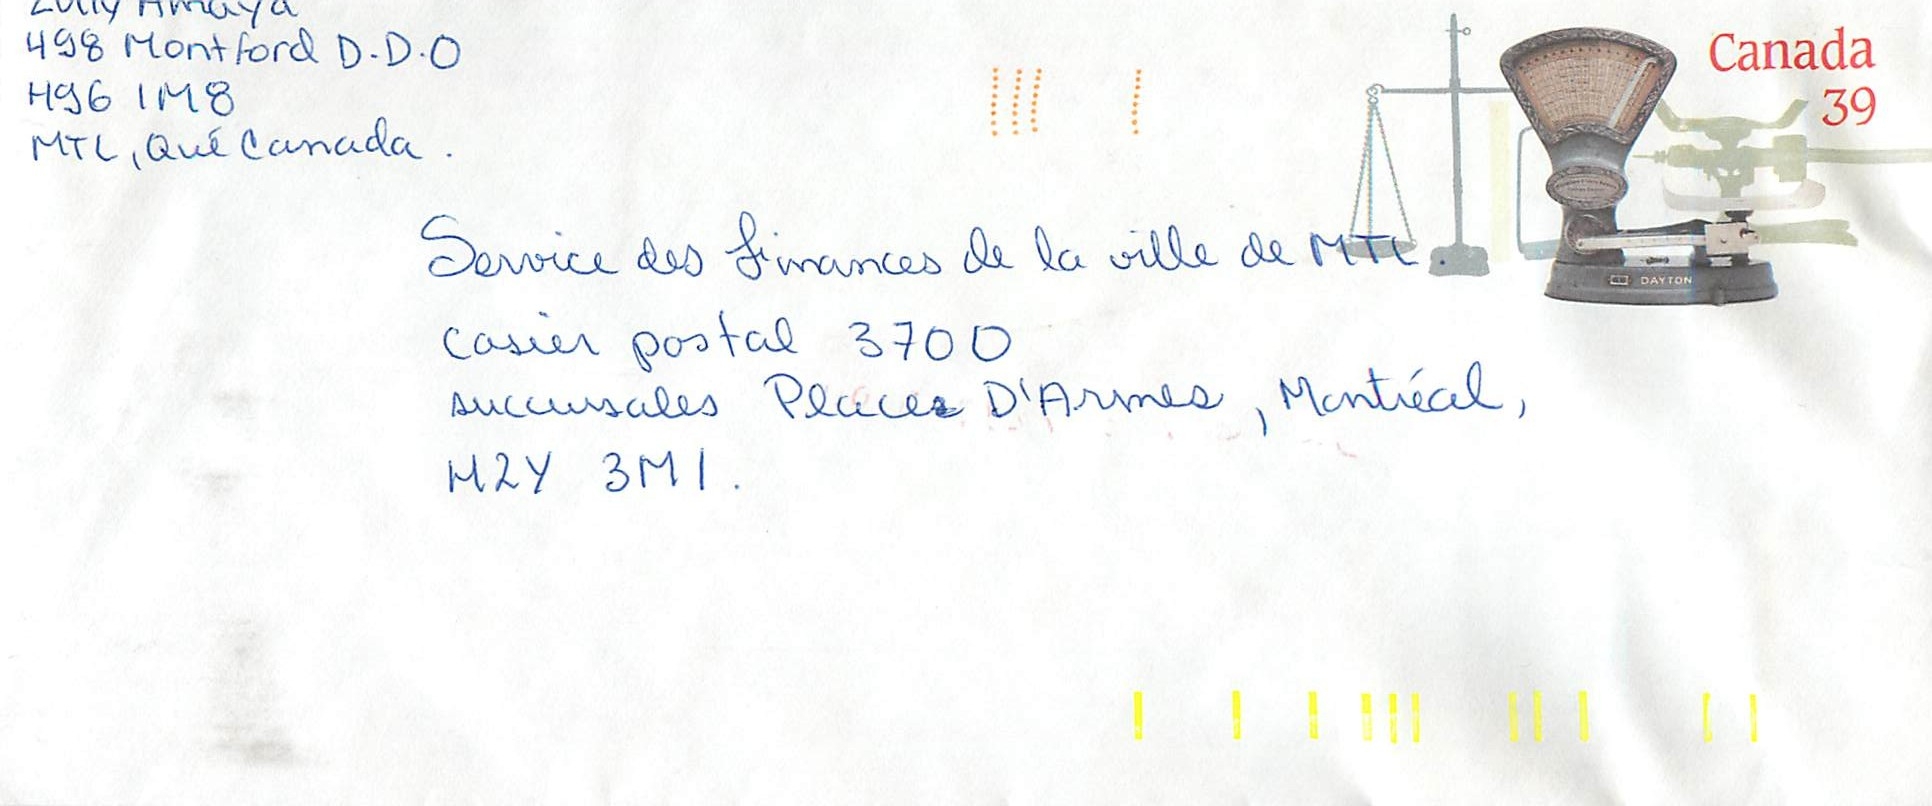 Zully Amaya
498 Montford D.D.O
H9G 1M8
MTL, Qué Canada.
Canada
39
DAYTON
Service des finances de la ville de MTL.
casier postal 3700
succursales Places D'Armes, Montréal,
H2Y 3M1.